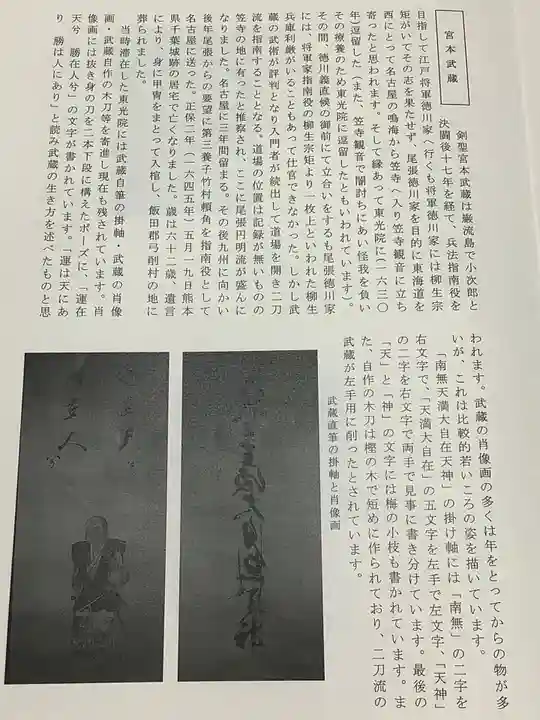 宮本武蔵
剣聖宮本武蔵は巌流島で小次郎と
決闘後十七年を経て、兵法指南役を
目指して江戸将軍徳川家へ行くも将軍徳川家には柳生宗
矩がいてその志を果たせず、尾張徳川家を目的に東海道を
西にとって名古屋の鳴海から笠寺へ入り笠寺観音に立ち
寄ったと思われます。そして縁あって東光院に(一六三〇
年)逗留した(また、笠寺観音で闇討ちにあい怪我を負い
その療養のため東光院に逗留したともいわれています)。
その間、徳川義直候の御前にて立合いをするも尾張徳川家
には、将軍家指南役の柳生宗矩より一枚上といわれた柳生
兵庫利厳がいることもあって仕官できなかった。しかし武
蔵の武術が評判となり入門者が続出して道場を開き二刀
流を指南することとなる。道場の位置は記録が無いものの
笠寺の地に有ったと推察され、ここに尾張円明流が盛んに
なりました。名古屋に三年間留まる。その後九州に向かい
後年尾張からの要望に第三養子竹村頼角を指南役として
名古屋に送った。正保二年(一六四五年)五月一九日熊本
県千葉城跡の居宅で亡くなりました。歳は六十二歳、遺言
により、身に甲冑をまとって入棺し、飯田郡弓削村の地に
葬られました。
当時滞在した東光院には武蔵自筆の掛軸・武蔵の肖像
画・武蔵自作の木刀等を寄進し現在も残されています。肖
像画には抜き身の刀を二本下段に構えたポーズに、「運在
天兮 勝在人兮」の文字が書かれています。「運は天にあ
り 勝は人にあり」と読み武蔵の生き方を述べたものと思
われます。武蔵の肖像画の多くは年をとってからの物が多
いが、これは比較的若いころの姿を描いています。
「南無天満大自在天神」の掛け軸には「南無」の二字を
右文字で、「天満大自在」の五文字を左手で左文字、「天神」
の二字を右文字で両手で見事に書き分けています。最後の
「天」と「神」の文字には梅の小枝も書かれています。ま
た、自作の木刀は樫の木で短めに作られており、二刀流の
武蔵が左手用に削ったとされています。
武蔵直筆の掛軸と肖像画